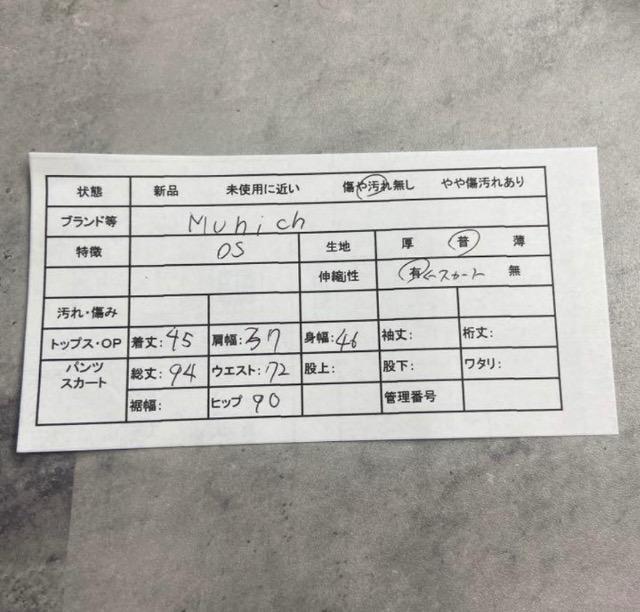 状態 新品 未使用に近い 傷や汚れ無し やや傷汚れあり
ブランド等 Munich
特徴 OS 生地 厚 普 薄
伸縮性 有←スカート 無
汚れ・傷み
トップス・OP 着丈: 45 肩幅: 37 身幅: 46 袖丈: 裄丈:
パンツ スカート 総丈: 94 ウエスト: 72 股上: 股下: ワタリ:
裾幅: ヒップ 90 管理番号